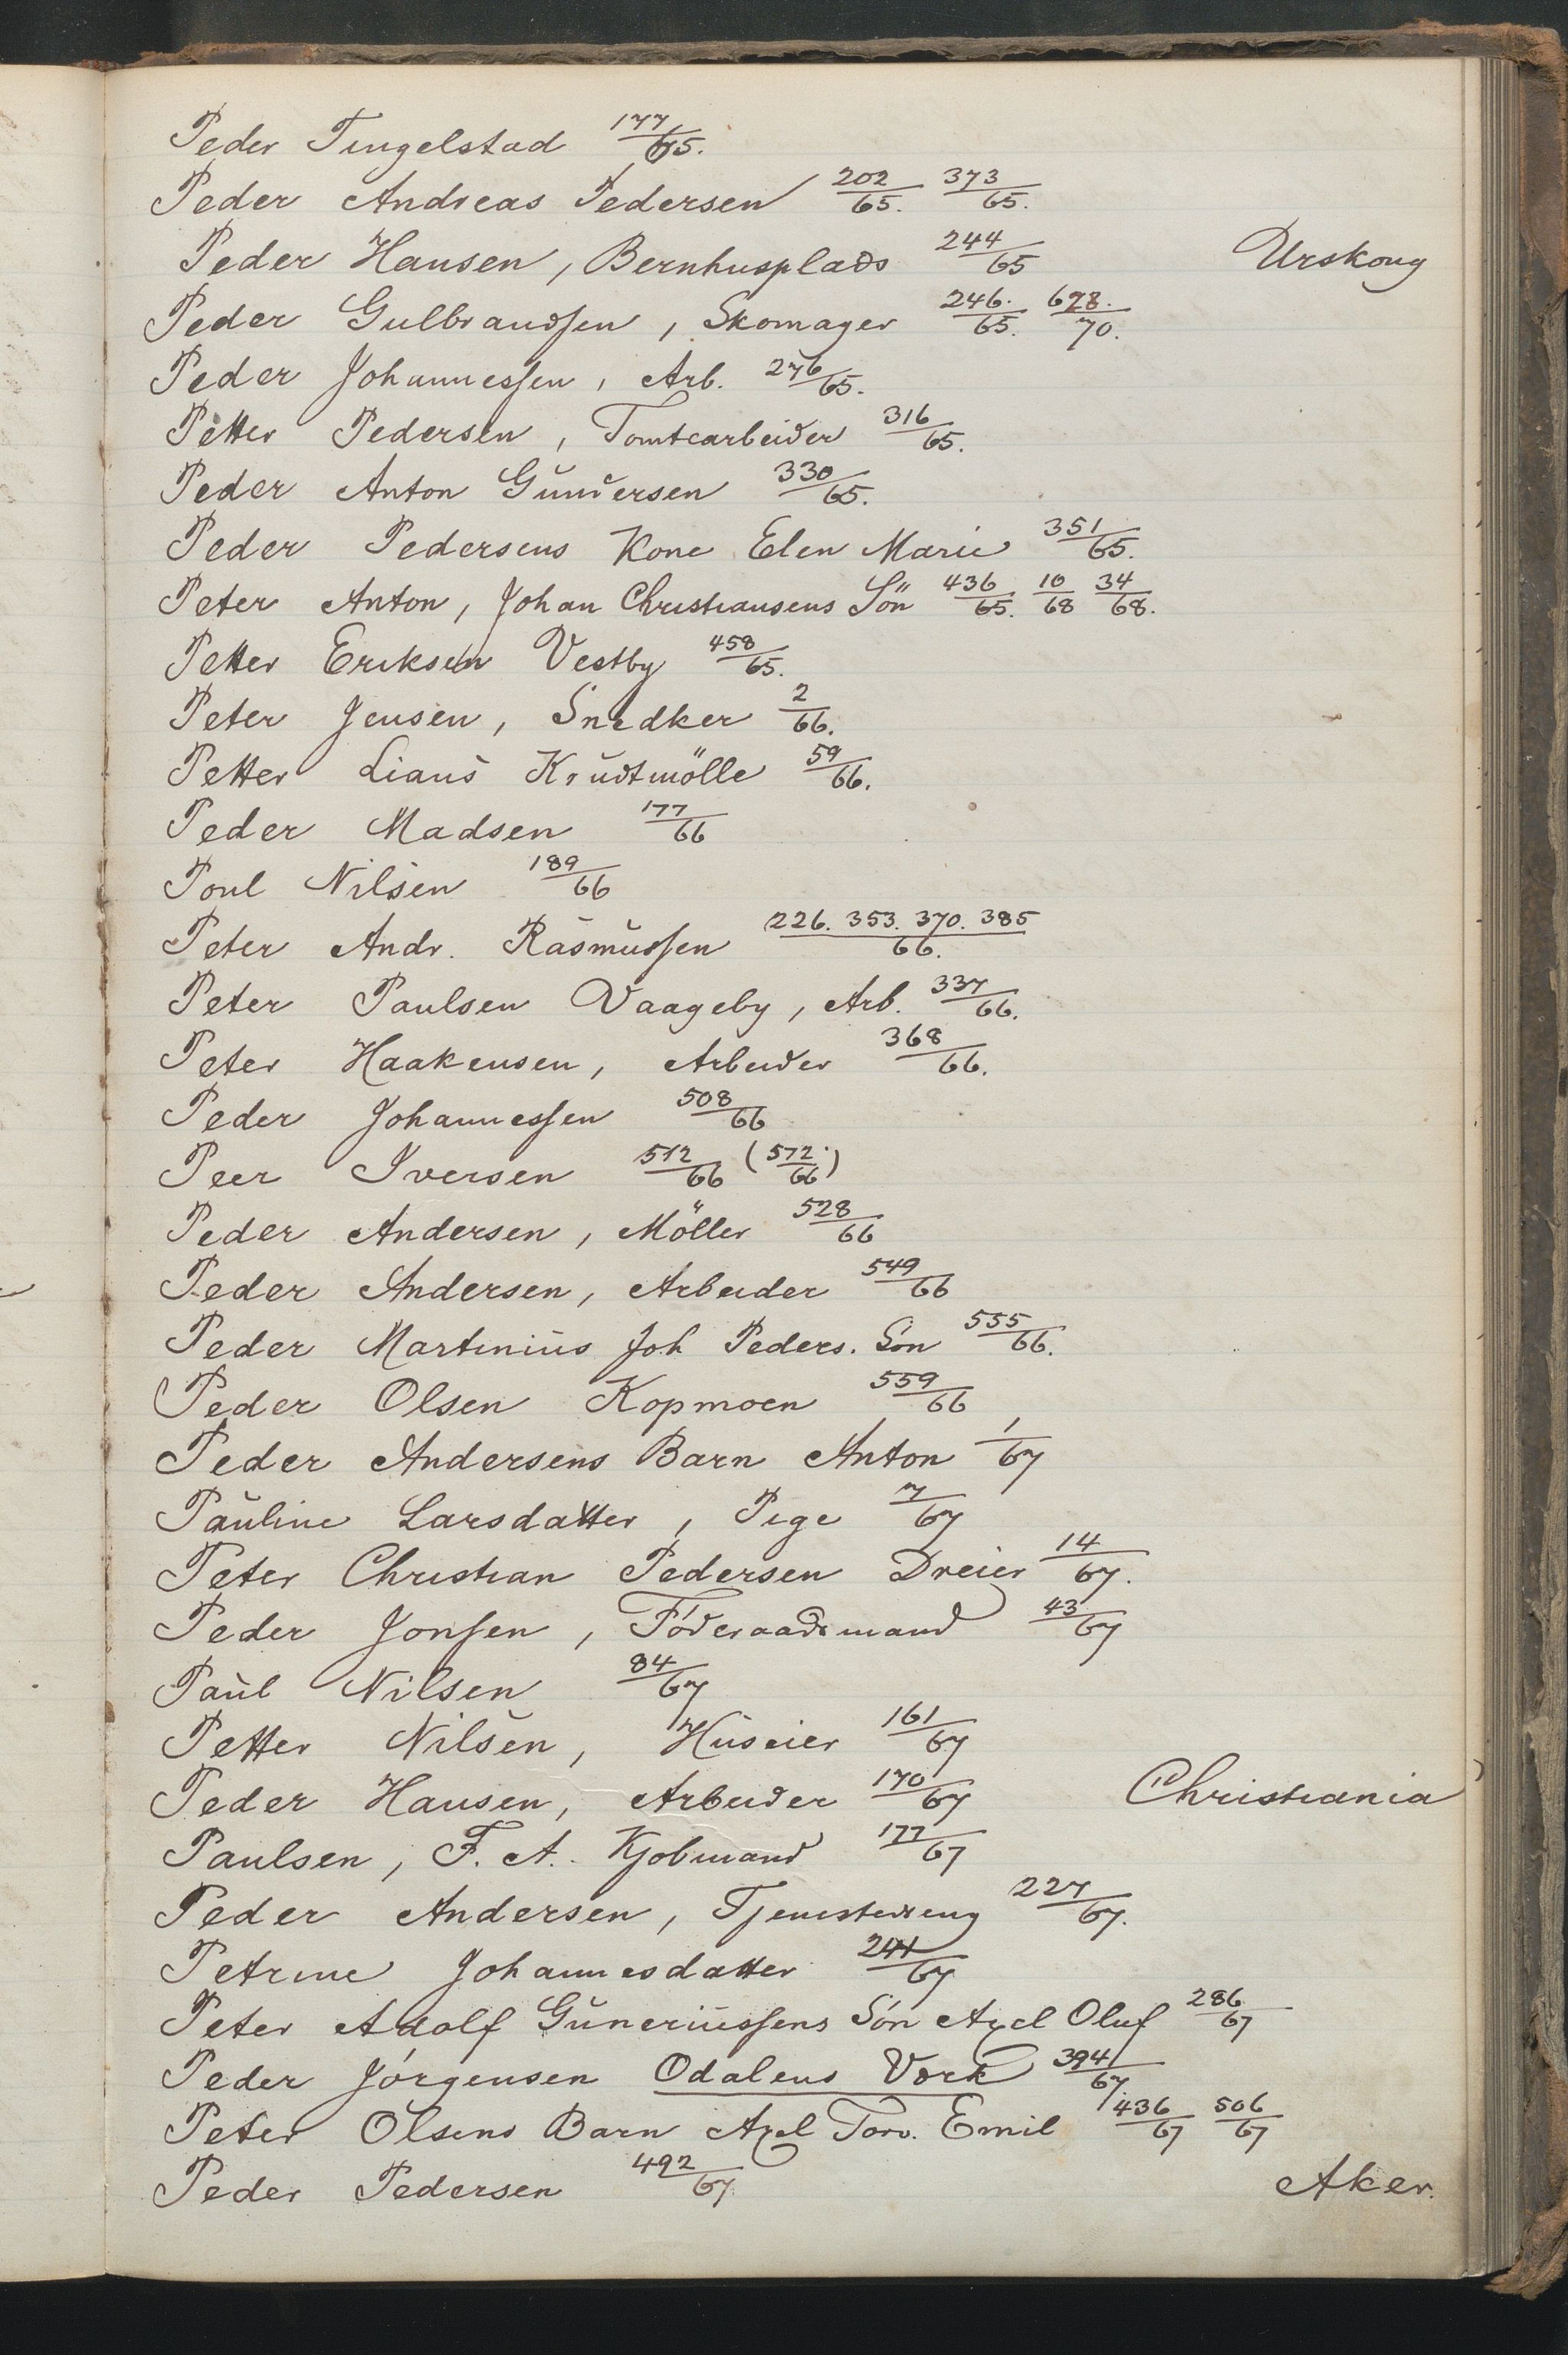 Peder Tingelstad 177/65.
Peder Andreas Pedersen 202/65. 373/65.
Peder Hansen, Bernhusplads 244/65 Urskoug
Peder Gulbrandsen, Skomager 246./65. 678./70.
Peder Johannessen, Arb. 276/65.
Petter Pedersen, Tomtearbeider 316/65.
Peder Anton Gundersen 330/65.
Peder Pedersens Kone Elen Marie 351/65.
Peter Anton, Johan Christiansens Sön 436/65. 10/68 34/68.
Petter Eriksen Vestby 458/65.
Peter Jensen, Snedker 2/66.
Petter Lians Krudtmölle 59/66.
Peder Madsen 177/66
Poul Nilsen 189/66
Peter Andr. Rasmussen 226. 353. 370. 385/66.
Peter Paulsen Vaageby, Arb. 337/66.
Peter Haakensen, Arbeider 368/66.
Peder Johannessen 508/66
Peer Iversen 512/66 (572./66)
Peder Andersen, Möller 528/66
Peder Andersen, Arbeider 549/66
Peder Martinius Joh Peders. Sön 555/66.
Peder Olsen Kopmoen 559/66
Peder Andersens Barn Anton 1/67
Pauline Larsdatter, Pige 7/67
Peter Christian Pedersen Dreier 14/67.
Peder Jonsen, Föderaadsmand 43/67
Paul Nilsen 84/67
Petter Nilsen, Huseier 161/67
Peder Hansen, Arbeider 170/67 Christiania
Paulsen, F. A. Kjobmand 177/67
Peder Andersen, Tjenestedreng 227/67.
Petrine Johannesdatter 241/67
Peter Adolf Guneriussens Sön Axel Oluf 286/67
Peder Jörgensen Odalens Værk 394/67.
Peter Olsens Barn Axel Torv. Emil 436/67 506/67
Peder Pedersen 492/67 Aker.